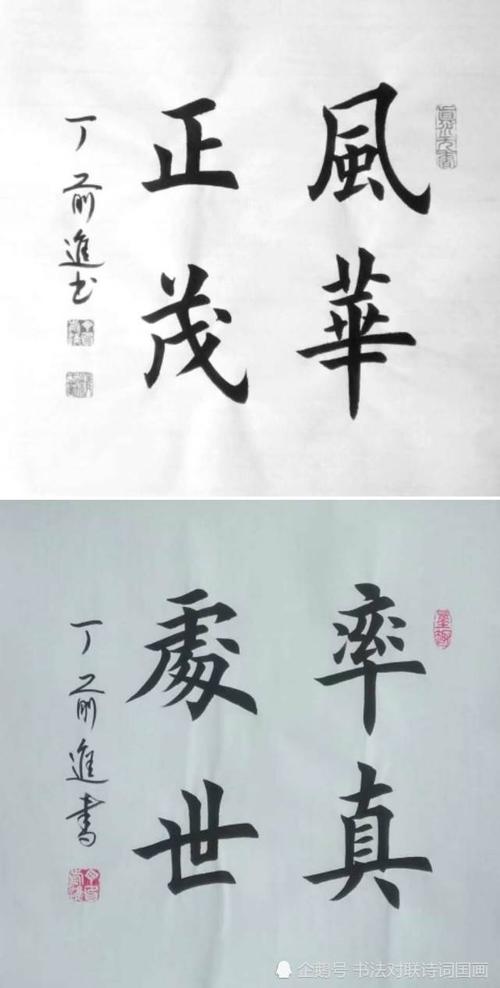 風華
正茂
丁前進书
率真
處世
丁前進書
企鹅号 书法对联诗词国画